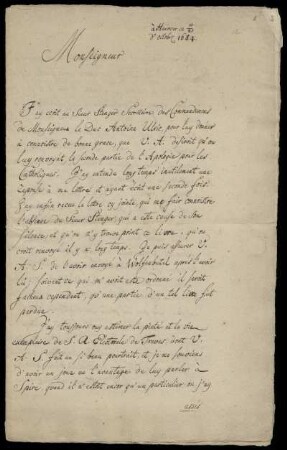 Monseigneur
J'ay ecrit au Sieur Secretaire des Commandemens
de Monseigneur le Duc Antoine Ulric, pour luy donner
à connoistre de bonne grace, que V. A. desiroit qu'on
luy renvoyât, la seconde partie de l'Apologie pour les
Catholiques. J'ay attendu long temps inutilement une
reponse à ma lettre et ayant écrit une seconde fois
J'ay enfin receu la lettre cy jointe, qui me fait connoistre
l'absence du Sieur qui a esté cause de son
silence et qu'on ne trouve point ce livre, qu'on
croit renvoyé il y a long temps. Je puis asseurer V.
A. S. de l'avoir envoyé à Wolfenbutel apres l'avoir
lû, suivant ce qui m'avoit esté ordonné il seroit
facheux cependant, qu'une partie d'un tel livre fut
perdue.
J'ay toujours estimer la pieté et la vie
exemplaire de S. A. Electorale de Treves dont V.
A. S. fait un si beau portrait, et je me souviens
d'avoir un jour eu l'avantage de luy parler à
Spire, quand il n'estoit encor qu'un particulier ou j'ay
aussi